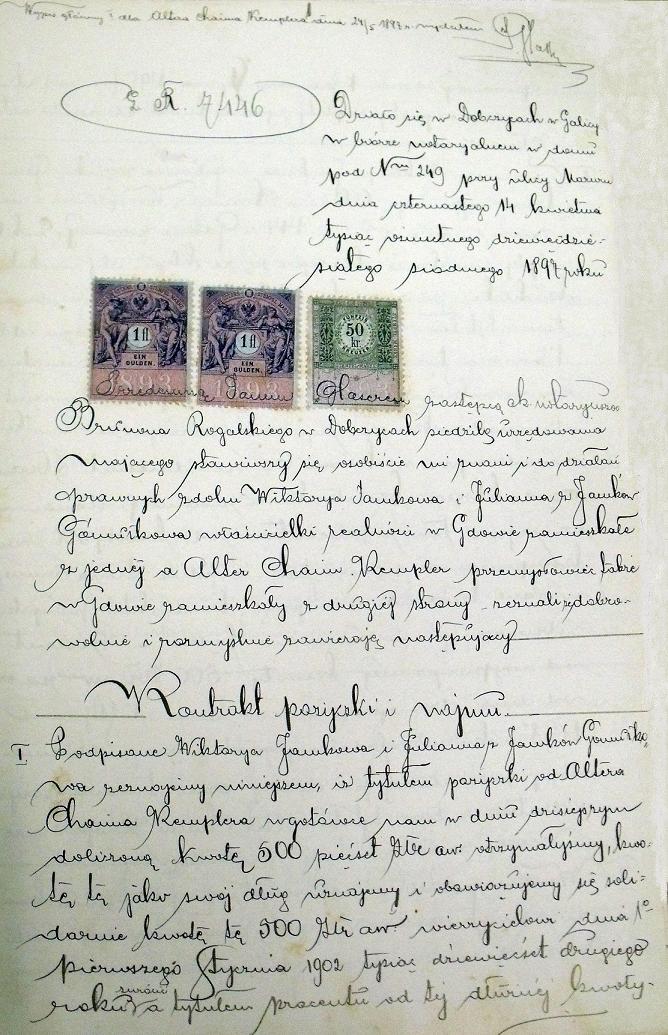 Wypis główny I dla Altera Chaima Kemplera dnia 24/5 1897 r. wydałem
L. R. 7/146
Działo się w Dobczycach w Galicy
w biórze notaryalnem w domu
pod Nrm 249 przy ulicy
dnia czternastego 14 kwietnia
tysiąc ośmsetnego dziewięćdzie-
siątego siódmego 1897 roku
1 fl
EIN
GULDEN
1893
1 fl
EIN
GULDEN
1893
FÜNFZIG
50
kr.
KREUZER
Przedemną Janem Glaserem zastępcą ck notaryusza
Brunona Rogalskiego w Dobczycach siedzibę urzędowania
mającego stawiwszy się osobiście mi znani i do działań
prawnych zdolni Wiktorya Jamkowa i Julianna z Jamków
Gómułkowa właścicielki realności w Gdowie zamieszkałe
z jednéj a Alter Chaim Kempler przemysłowiec także
w Gdowie zamieszkały z drugiéj strony – zeznali iż dobro-
wolnie i rozmyślnie zawierają następujący
Kontrakt pożyczki i najmu.
I Podpisane Wiktorya Jamkowa i Julianna z Jamków Gómułko-
wa zeznajemy niniejszem, iż tytułem pożyczki od Altera
Chaima Kemplera w gotówce nam w dniu dzisiejszym
doliczoną kwotę 500 pięćset Złr aw. otrzymałyśmy, kwo-
tę tę jako swój dług uznajemy i obowiązujemy się soli-
darnie kwotę tę 500 Złr aw. wierzycielowi dnia 1o
pierwszego Stycznia 1902 tysiąc dziewięćset drugiego
roku zwrócić a tytułem procentu od téj dłużnéj kwoty-